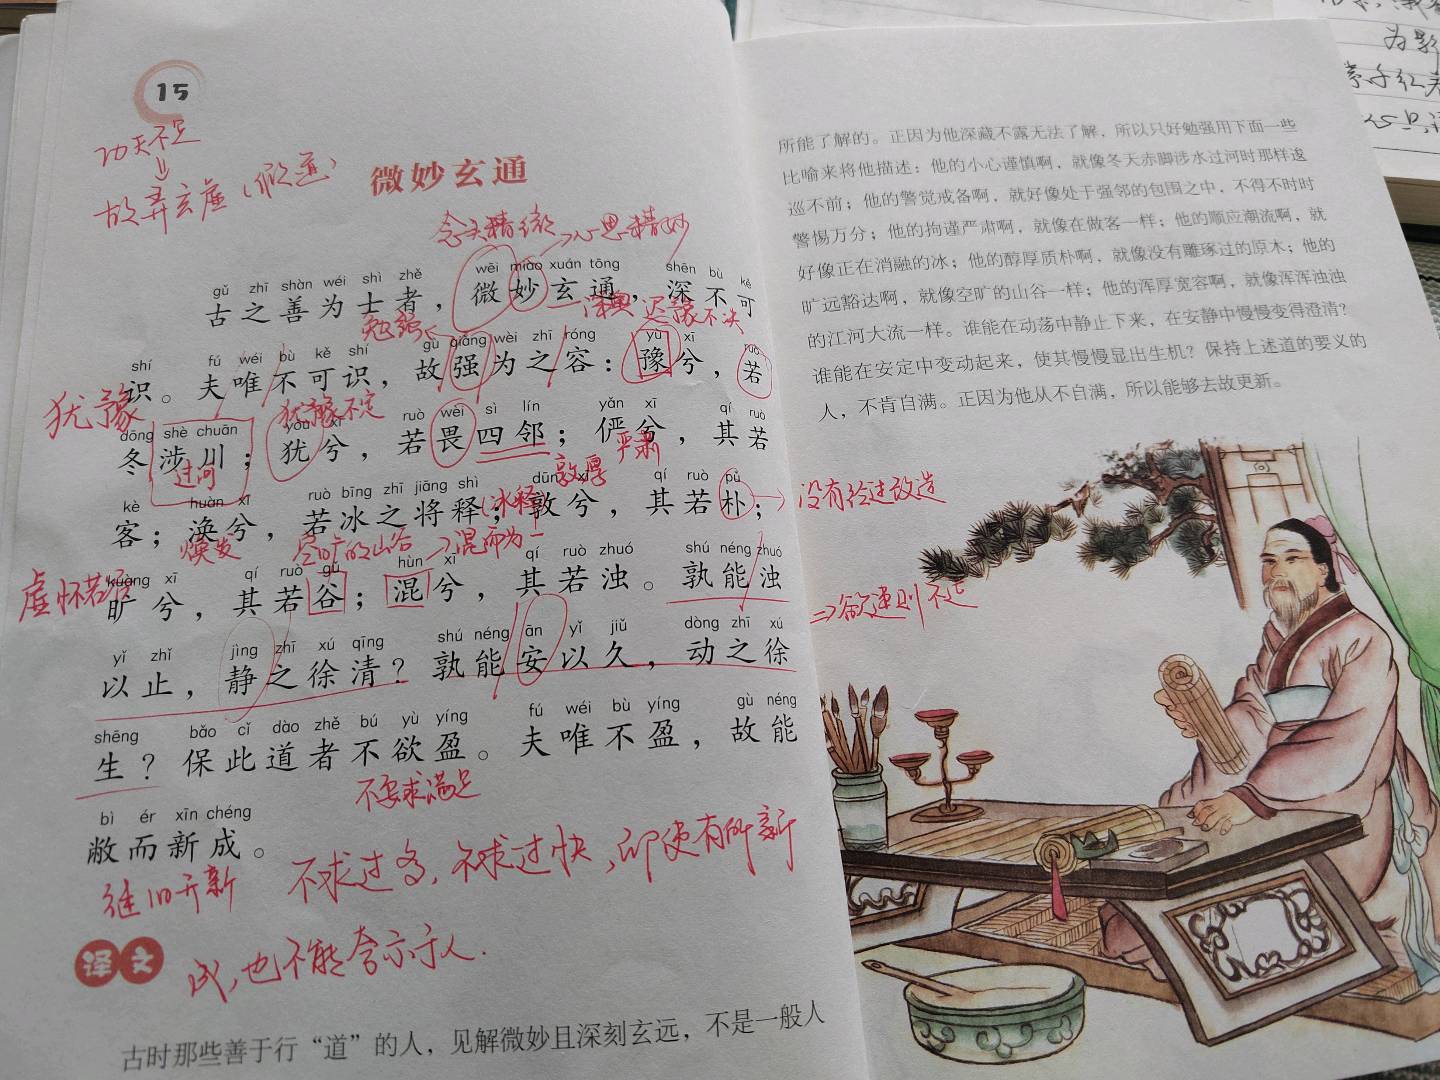 15
功夫不足
故弄玄虚（假道）
微妙玄通
念头精微
→心思精妙
gǔ zhī shàn wéi shì zhě wēi miào xuán tōng shēn bù kě
古之善为士者，微妙玄通，深不可
勉强
深奥
迟豫不决
shí fú wéi bù kě shí gù qiǎng wèi zhī róng yù xī ruò
识。夫唯不可识，故强为之容：豫兮，若
犹豫
犹豫不定
dōng shè chuān yóu xī ruò wèi sì lín yǎn xī qí ruò
冬涉川；犹兮，若畏四邻；俨兮，其若
过河
敦厚
严肃
kè huàn xī ruò bīng zhī jiāng shì dūn xī qí ruò pǔ
客；涣兮，若冰之将释；敦兮，其若朴；
（冰释
→没有经过改造
焕发
空旷的山谷
→混而为一
虚怀若谷
kuàng xī qí ruò gǔ hùn xī qí ruò zhuó shú néng zhuó
旷兮，其若谷；混兮，其若浊。孰能浊
⇒欲速则不足
yǐ zhǐ jìng zhī xú qīng shú néng ān yǐ jiǔ dòng zhī xú
以止，静之徐清？孰能安以久，动之徐
shēng bǎo cǐ dào zhě bú yù yíng fú wéi bù yíng gù néng
生？保此道者不欲盈。夫唯不盈，故能
不要求满足
bì ér xīn chéng
敝而新成。
继旧开新
不求过多，不求过快，即使有所新
成，也不能含示于人.
译文
古时那些善于行“道”的人，见解微妙且深刻玄远，不是一般人
所能了解的。正因为他深藏不露无法了解，所以只好勉强用下面一些
比喻来将他描述：他的小心谨慎啊，就像冬天赤脚涉水过河时那样逡
巡不前；他的警觉戒备啊，就好像处于强邻的包围之中，不得不时时
警惕万分；他的拘谨严肃啊，就像在做客一样；他的顺应潮流啊，就
好像正在消融的冰；他的醇厚质朴啊，就像没有雕琢过的原木；他的
旷远豁达啊，就像空旷的山谷一样；他的浑厚宽容啊，就像浑浑浊浊
的江河大流一样。谁能在动荡中静止下来，在安静中慢慢变得澄清？
谁能在安定中变动起来，使其慢慢显出生机？保持上述道的要义的
人，不肯自满。正因为他从不自满，所以能够去故更新。
为影